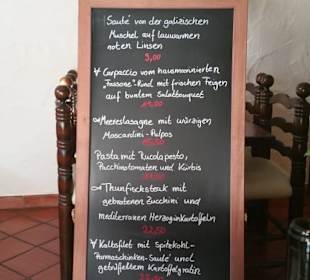 Sauté von der galizischen
Muschel auf lauwarmen
roten Linsen
9,00
Carpaccio vom hausmarinierten
"Fassone"-Rind mit frischen Feigen
auf buntem Salatbouquet
Meereslasagne mit würzigen
Moscardini-Pulpos
Pasta mit Rucolapesto,
Pacchinotomaten und Kürbis
Thunfischsteak mit
gebratenen Zucchini und
mediterranen Herzoginkartoffeln
22,50
Kalbsfilet mit Spitzkohl-
Parmaschinken-Sauté und
getrüffeltem Kartoffelgratin